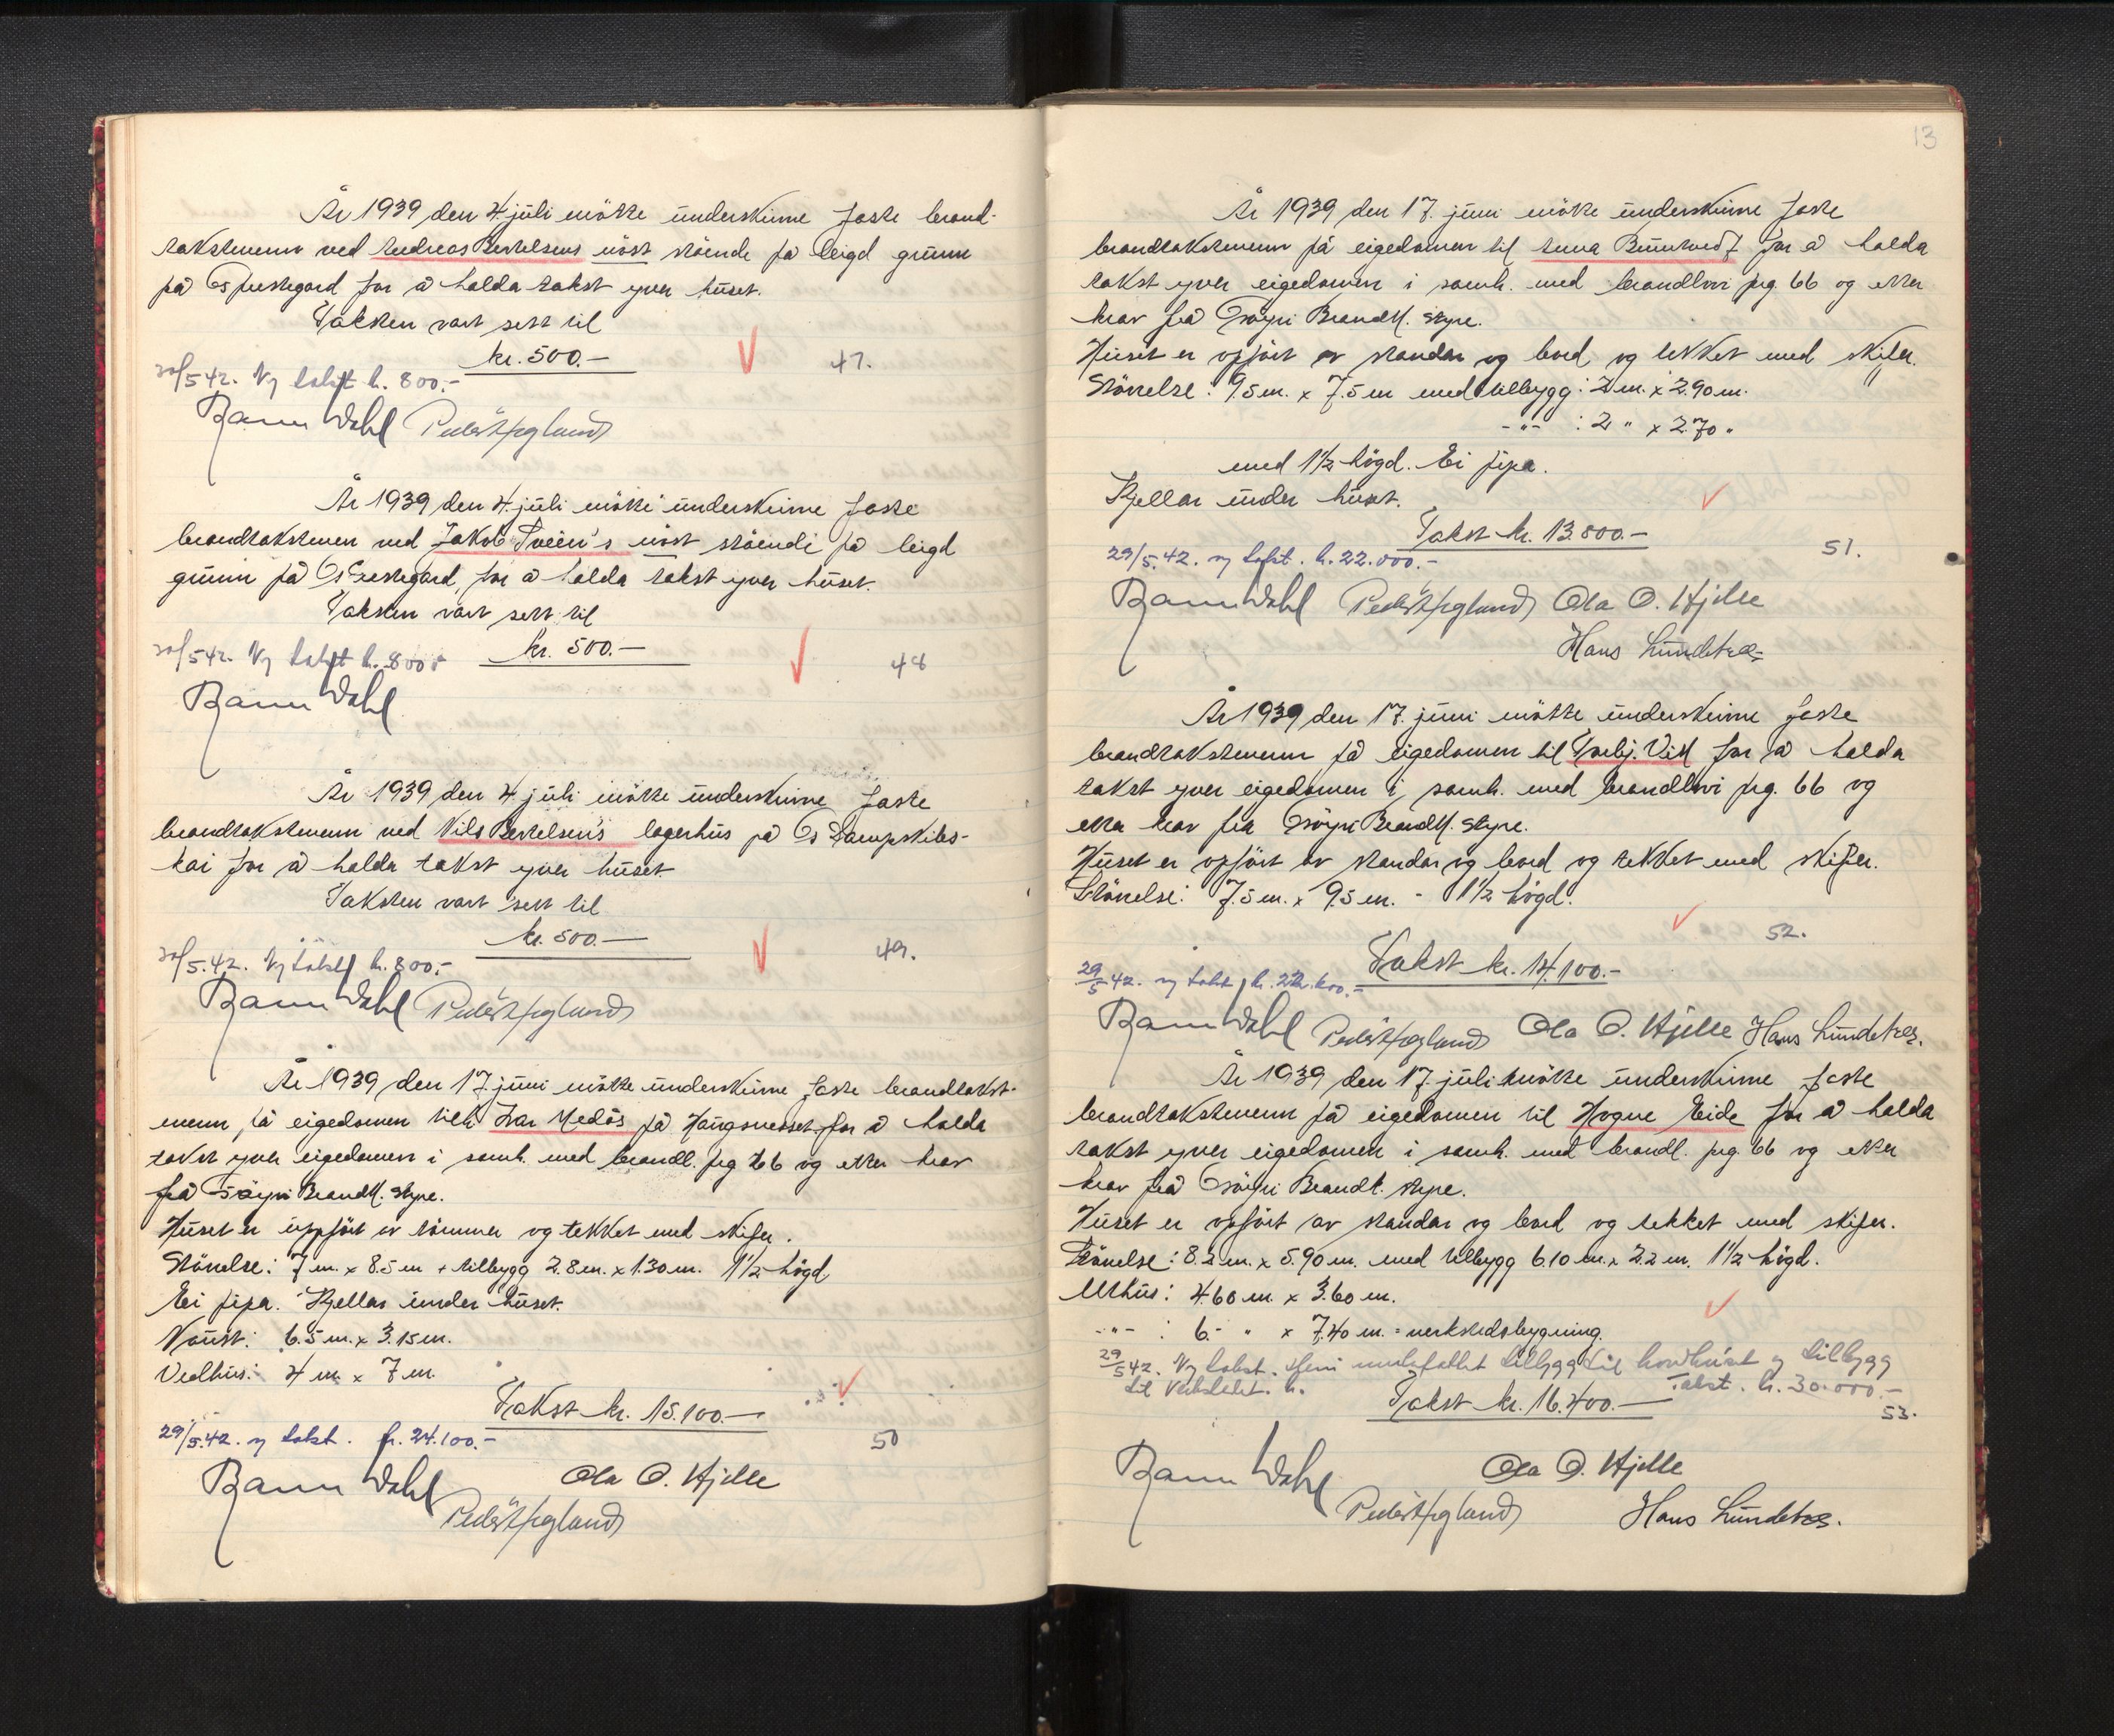 År 1939 den 4. juli mötte underskrivne faste brand-
takstmenn ved Andreas Bertelsens nöst stående på leigd grunn
på Os prestegard for å halda takst yver huset.
Taksten vart sett til
kr. 500.-
47.
20/5 42. Ny takst kr. 800.-
Barm Wahl Peder Høgland
År 1939 den 4. juli mötte underskrivne faste
brandtakstmen ved Jakob Tvein's nöst ståendi på leigd
grunn på Os Prestegard, for å halda takst yver huset.
Taksten vart sett til
kr. 500.-
20/5 42. Ny takst kr. 800.-
48
Barm Wahl
År 1939 den 4. juli mötte underskrivne faste
brandtakstmenn ved Nils Bertelsen's lagerhus på Os Dampskibs-
kai for å halda takst yver huset.
Taksten vart sett til
kr. 500.-
49.
20/5.42. Ny takst kr. 800.-
Barm Wahl Peder Høgland
År 1939 den 17. juni mötte underskrivne faste brandtakst-
menn på eigedomen till Ivar Medås på Hangsneset for å halda
takst yver eigedomen i samh. med brandl. prg 66 og etter krav
frå Osöyri Brandk. styre.
Huset er uppfört av tömmer og tekket med skifer.
Störrelse: 7 m. x 8.5 m + tilbygg 2.8 m. x 1.30 m. 1½ högd
Ei pipa. Kjellar under huset.
Naust: 6.5 m. x 3.15 m.
Vedhus: 4 m x 7 m.
Takst kr. 15.100.-
29/5.42. ny takst. kr. 24.100.-
50
Barm Wahl Ola O. Hjelle
Peder Høgland
13
År 1939 den 17. juni mötte underskrivne faste
brandtakstmenn på eigedomen til Anna Buntvedt for å halda
takst yver eigedomen i samh. med brandlovi prg. 66 og etter
krav frå Osöyri Brandk. styre.
Huset er opfört av standar og bord og tekket med skifer.
Störrelse: 9.5 m. x 7.5 m med tilbygg: 2 m. x 2.90 m.
-"- : 2 " x 2.70 "
med 1½ högd. Ei pipa.
Kjellar under huset.
Takst kr. 13.800.-
51.
29/5.42. ny takst. kr. 22.000.-
Barm Wahl Peder Høgland Ola O. Hjelle
Hans Lundetræ
År 1939 den 17. juni mötte underskrivne faste
brandtakstmenn på eigedomen til Torbj. Vik for å halda
takst yver eigedomen i samh. med brandlovi prg. 66 og
etter krav frå Osöyri Brandk. styre.
Huset er opfört av standar og bord og tekket med skifer.
Störrelse: 7.5 m. x 9.5 m. - 1½ högd.
52.
Takst kr. 14.100.-
29/5 42. ny takst kr.
Barm Wahl Peder Høgland Ola O. Hjelle Hans Lundetræ.
År 1939 den 17. juli mötte underskrivne faste
brandtakstmenn på eigedomen til Hogne Eide for å halda
takst yver eigedomen i samh. med brandl. prg. 66 og etter
krav frå Osöyri Brandk. styre.
Huset er opfört av standar og bord og tekket med skifer.
Störrelse: 8.2 m. x 5.90 m. med tilbygg 6.10 m. x 2.2 m. 1½ högd.
Uthus: 4.60 m. x 3.60 m.
-"- : 6.- " x 7.40 m. = verkstedsbygning.
29/5 42. Ny takst. tilbygg til og tilbygg
til Takst. kr. 30.000.-
Takst kr. 16.400.-
53.
Barm Wahl Ola O. Hjelle
Peder Høgland Hans Lundetræ.